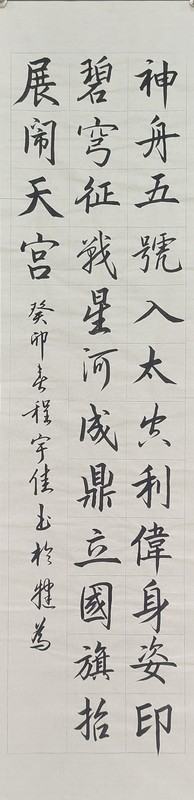 神舟五號入太空利偉身姿印
碧穹征戰星河成鼎立國旗抬
展闹天宮 癸卯春程宇佳书於犍為